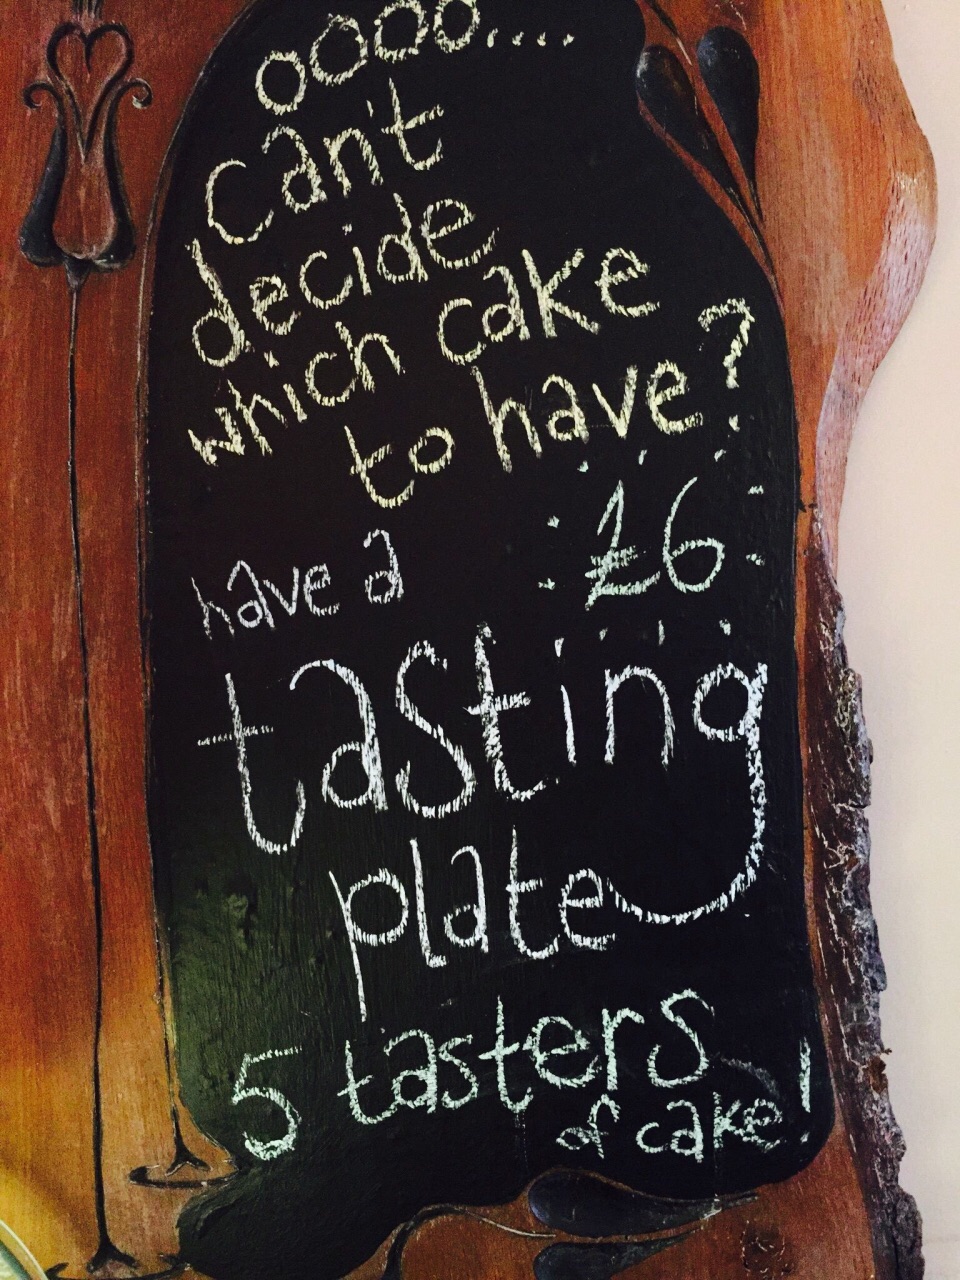 oooo....
can't
decide
which cake
to have?
have a £6
tasting
plate
5 tasters
of cake!